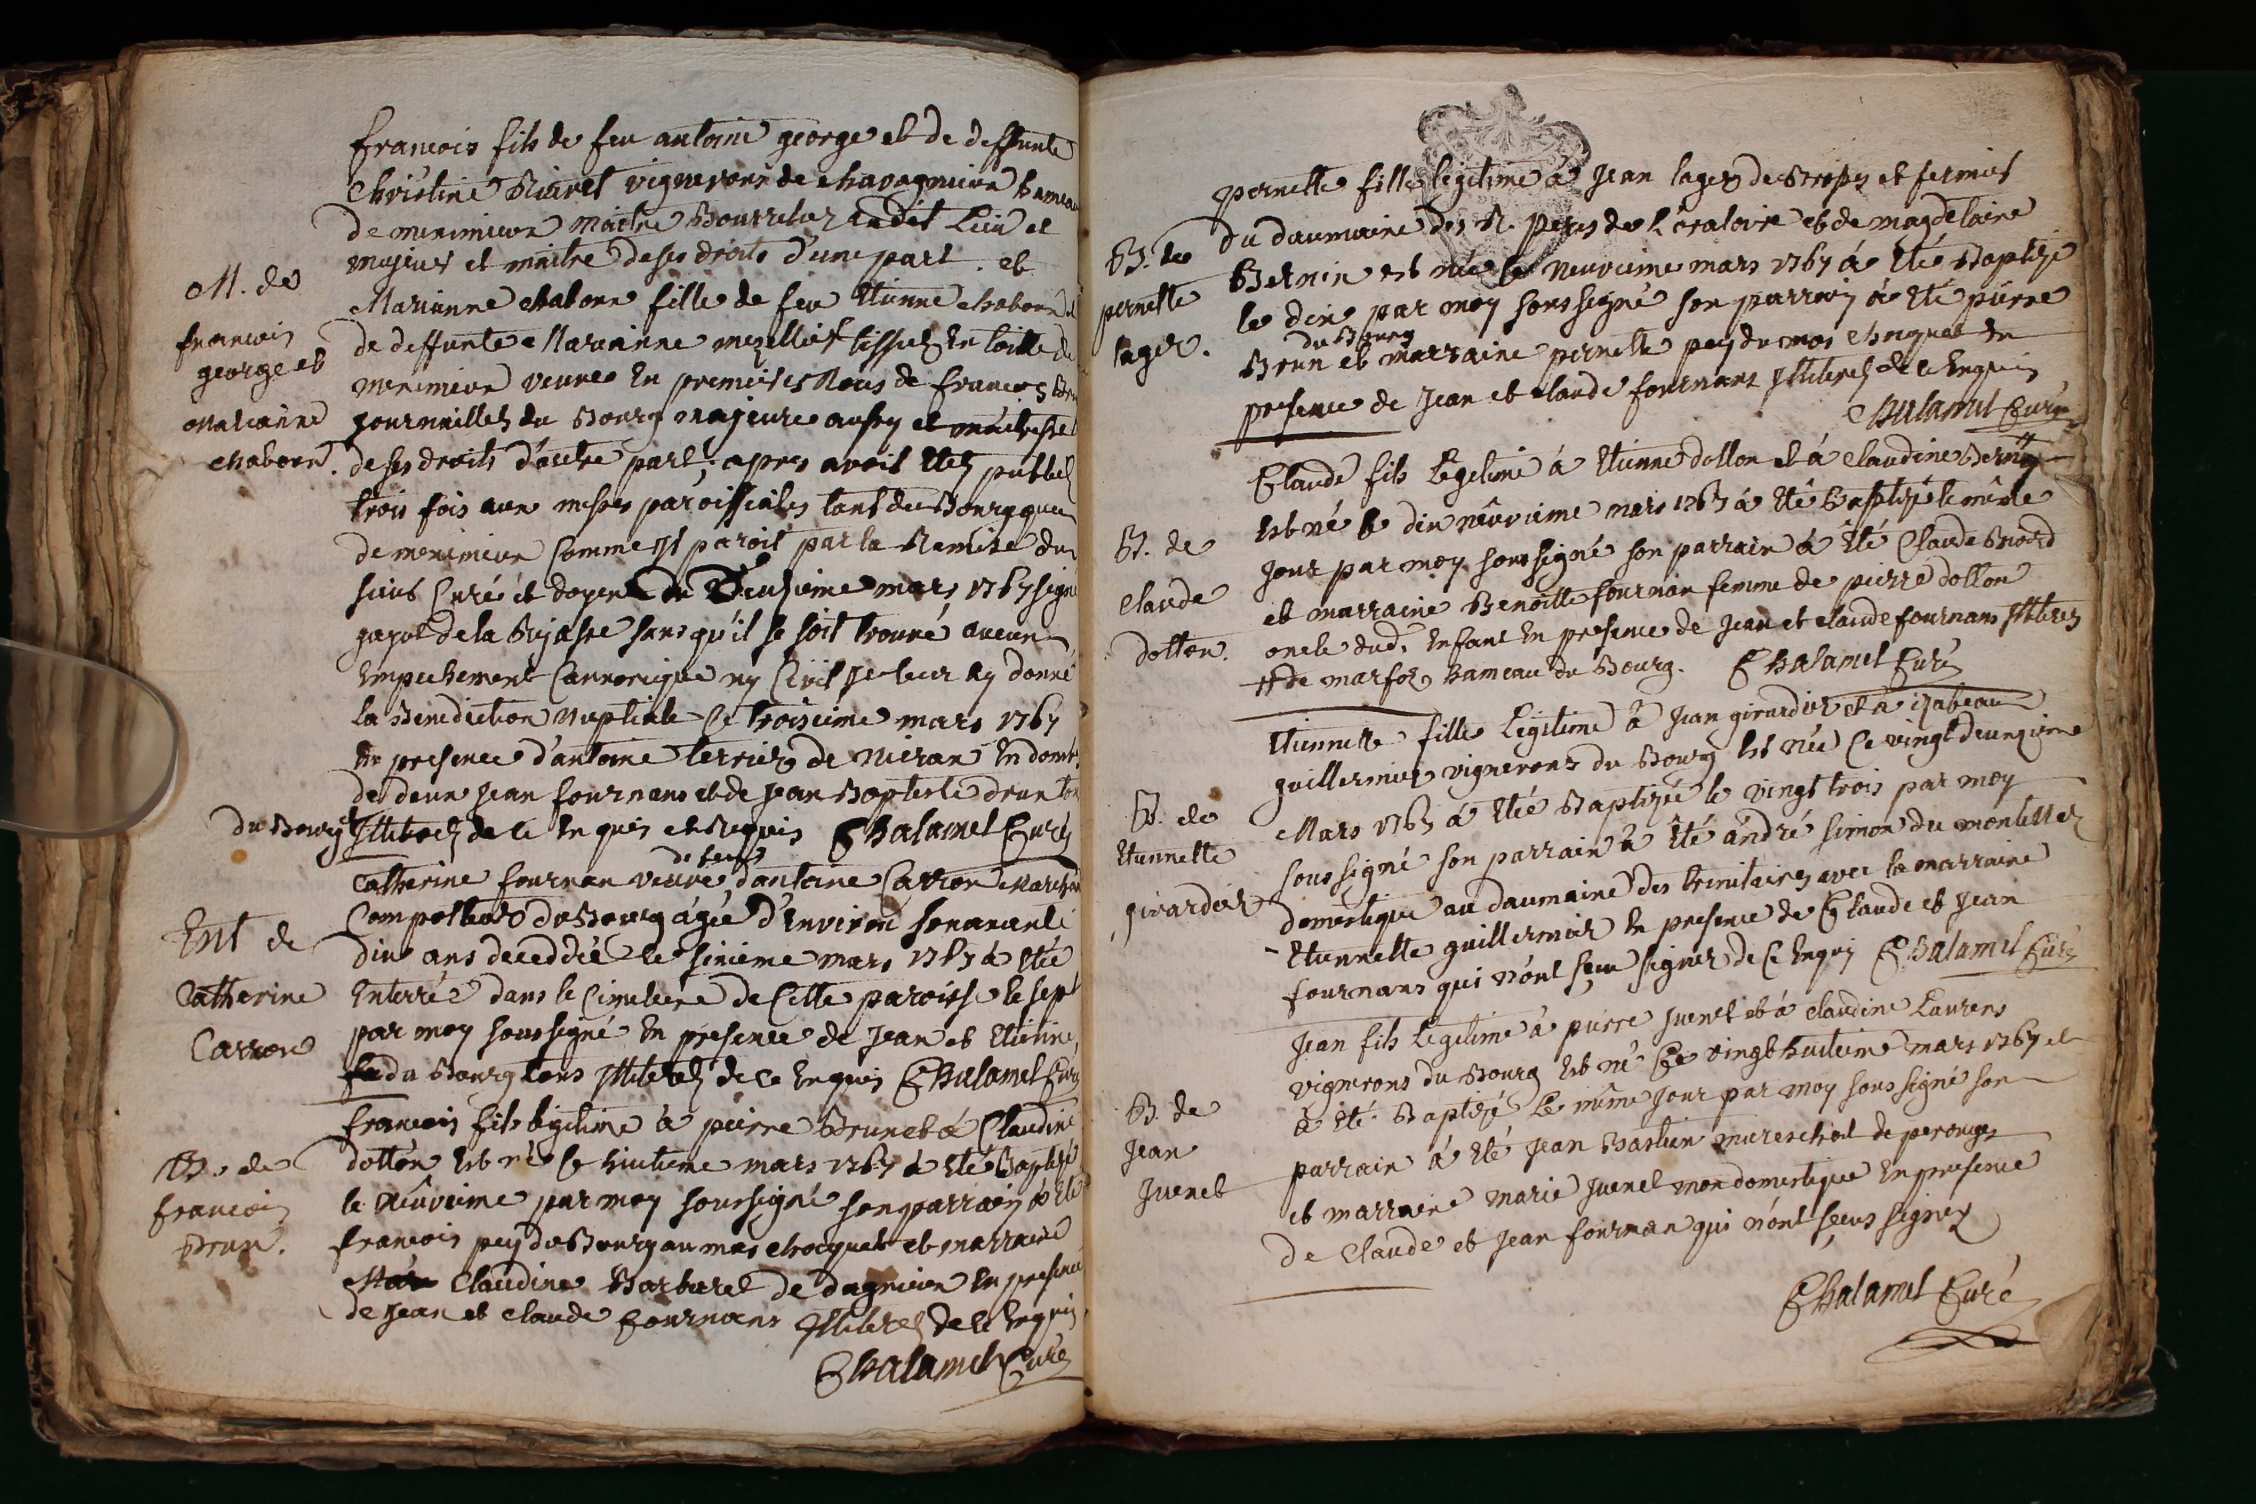 francois fils de feu antoine george et de deffunte
christine Rivret vignerons de chavagnieux hameau
de merimieux maitre Bourrelier audit Lieu et
majeur et maitre de ses droits d'une part. et
M. de
francois
george et
marianne
chabonn.
Marianne chabonn fille de feu Etienne chabonn et
de deffunte Marianne mezellier tissiers En toille de
merimieux veuve En premieres Noces de francois Brun
journaillez du Bourg majeure aussy et maitresse
de ses droits d'autre part; apres avoir Etez publiez
trois fois aux messes paroissiales tant du Bourg que
de merimieux Comme Il paroit par la Remise du
sieur Curé et doyen du Deuxieme mars 1767 signé
gayot de la Bujasse sans qu'il se soit trouvé aucun
Empechement Cannonique ny Civil Je leur ay donné
la Benediction Nuptiale Ce troisieme mars 1767
En presence d'antoine terrier de Nieran En dombes
de deux Jean fournans et de Jean Baptiste drun tous
du Bourg et Illiterez de Ce Enquis et Requis Chalamel Curé
Ent de
Catherine
Carron
Catherine fournan veuve d'antoine Carron marchand
Compolteur du Bourg agée d'Environ soixante
dix ans deceddée le sixieme mars 1767 a Eté
Enterrée dans le Cimetiere de Cette paroisse le sept
par moy soussigné En presence de Jean et Etienne
du Bourg tous Illiterez de Ce Enquis Chalamel Curé
B. de
francois
Brun.
francois fils legitime à pierre Brun et à Claudine
dotton Est né Ce huitieme mars 1767 à Eté Baptisé
le neuvieme par moy soussigné son parrain à Eté
francois pey du Bourg au mas chocquet et marraine
Claudine Barbaret de dagnieux En presence
de Jean et claude fournans Illiterez de Ce Enquis
Chalamel Curé
B. de
pernette
lager.
pernette fille legitime à Jean lager de et fermier
du daumaine des R. peres de L'oratoire et de magdelaine
Bernin est née le neuvieme mars 1767 à Etée Baptizé
le dix par moy soussigné son parrain à Eté pierre
du Bourg
Brun et marraine pernette pey du mas chocquet En
presence de Jean et claude fournans Illiterez de Ce Enquis
Chalamel Curé
B. de
claude
dotton.
Claude fils Legitime à Etienne dotton et à Claudine
Est né le dix neuvieme mars 1767 à Eté Baptizé le même
jour par moy soussigné son parrain à Eté Claude
et marraine Benoitte fournan femme de pierre dotton
oncle dud. Enfant En presence de Jean et claude fournans Illiterez
de marfoz hameau du Bourg. Chalamel Curé
B. de
Etiennette
girardier
Etiennette fille Legitime à Jean girardier et à izabeau
guillermier vignerons du Bourg Est née Ce vingt deuxieme
Mars 1767 à Etée Baptizée le vingt trois par moy
soussigné son parrain à Eté andré simon du montellier
domestique au daumaine des trinitaires avec la marraine
Etiennette guillermier En presence de Claude et Jean
fournans qui n'ont sceu signer de Ce Enquis Chalamel Curé
B. de
Jean
Juenet
Jean fils Legitime à pierre Juenet et à claudine Laurens
vignerons du Bourg Est né Ce vingt huitieme mars 1767 et
à Eté Baptizé Le même jour par moy soussigné son
parrain à Eté Jean Bastien mareschal de perouges
et marraine marie Juenet mon domestique En presence
de Claude et Jean fournan qui n'ont sceus signez
Chalamel Curé